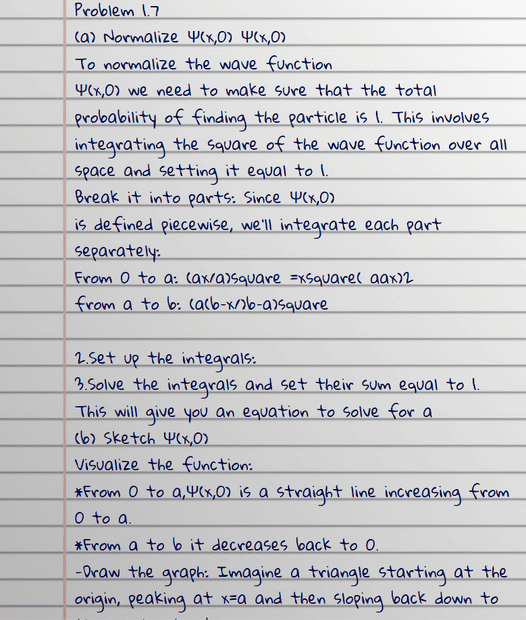 Problem 1.7
(a) Normalize Ψ(x,0) Ψ(x,0)
To normalize the wave function
Ψ(x,0) we need to make sure that the total
probability of finding the particle is 1. This involves
integrating the square of the wave function over all
space and setting it equal to 1.
Break it into parts: Since Ψ(x,0)
is defined piecewise, we'll integrate each part
separately:
From 0 to a: (ax/a)square =xsquare( aax)2
from a to b: (a(b-x/)b-a)square
2.Set up the integrals:
3.Solve the integrals and set their sum equal to 1.
This will give you an equation to solve for a
(b) Sketch Ψ(x,0)
Visualize the function:
*From 0 to a,Ψ(x,0) is a straight line increasing from
0 to a.
*From a to b it decreases back to 0.
-Draw the graph: Imagine a triangle starting at the
origin, peaking at x=a and then sloping back down to